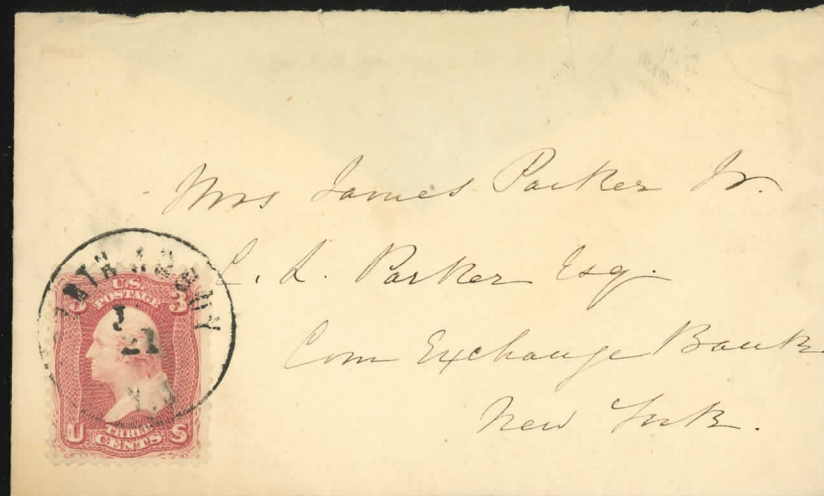 Mrs James Parker Jr.
L. L. Parker Esq.
Corn Exchange Bank
New York.
AMBOY
21
N.J
U.S.
POSTAGE
3 3
THREE
U CENTS S